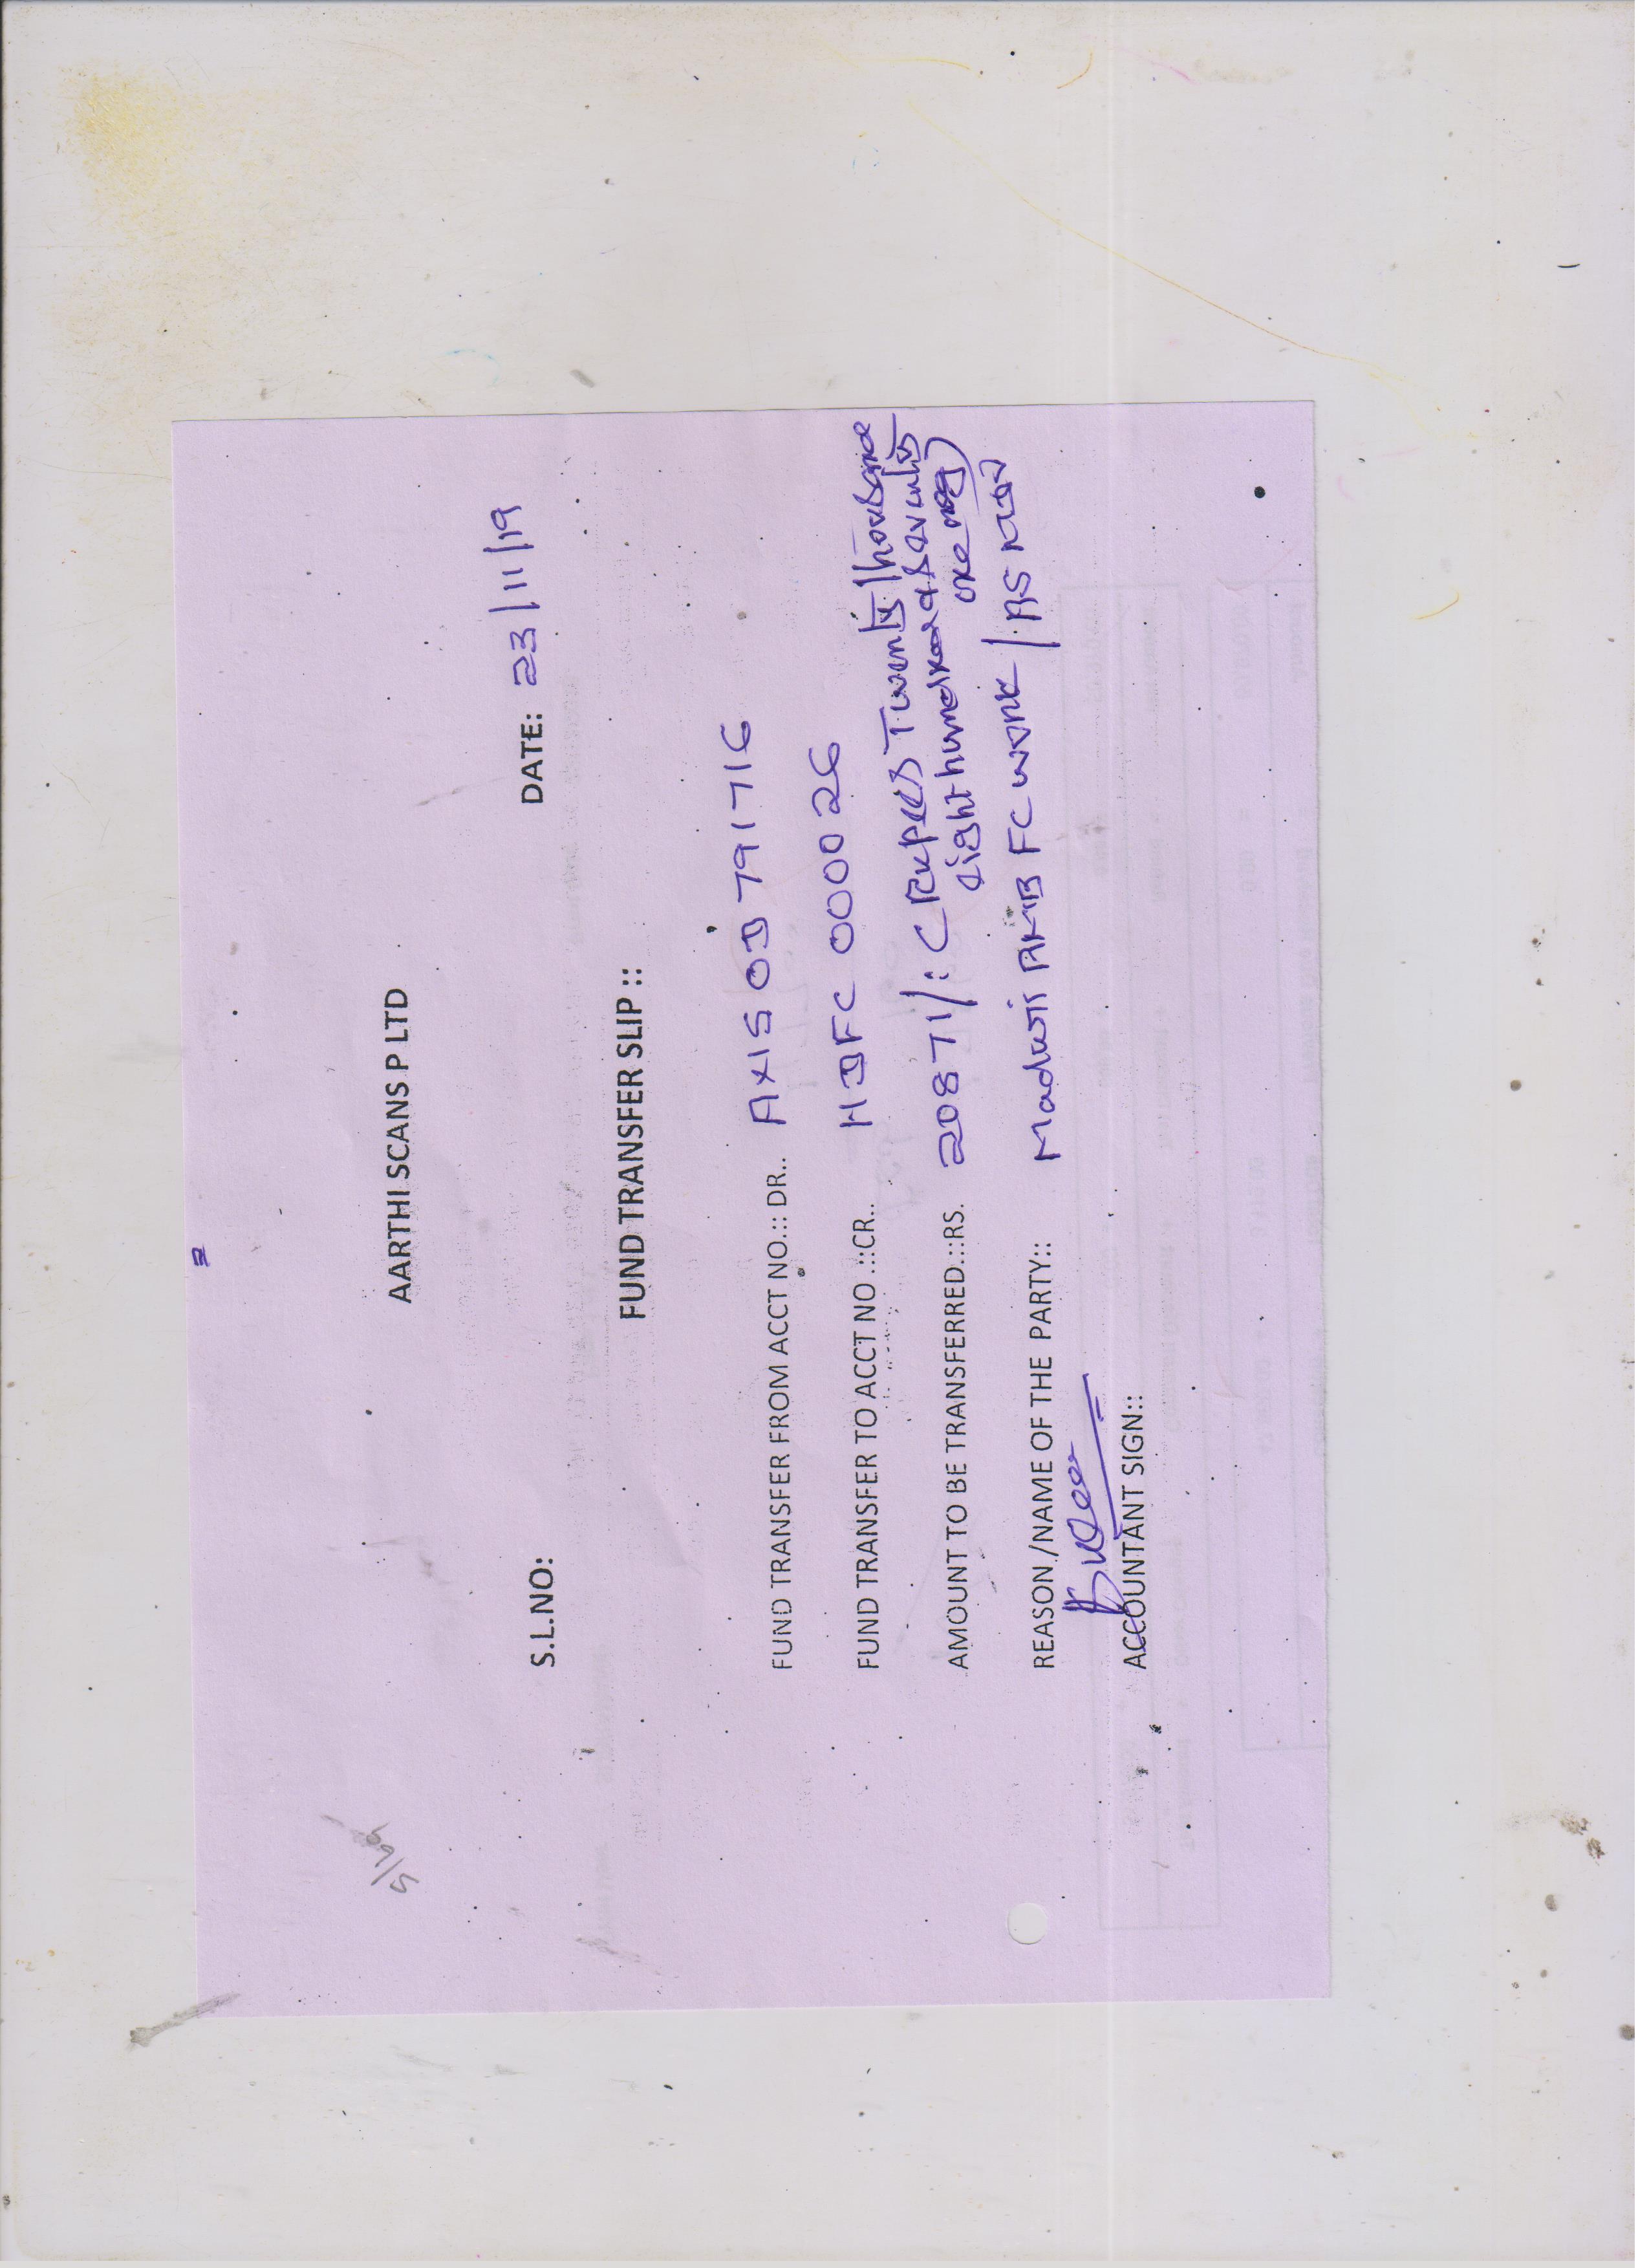 AARTHI SCANS P LTD
S.L.NO: DATE: 23/11/19
FUND TRANSFER SLIP ::
FUND TRANSFER FROM ACCT NO.:: DR.. AXIS OD 791716
FUND TRANSFER TO ACCT NO .::CR.. HDFC 000026
AMOUNT TO BE TRANSFERRED.::RS. 20871/: (Rupees Twenty Thousand
eight hundred & Seventy
one only)
REASON /NAME OF THE PARTY:: Madurai AMB FC work /
ACCOUNTANT SIGN::